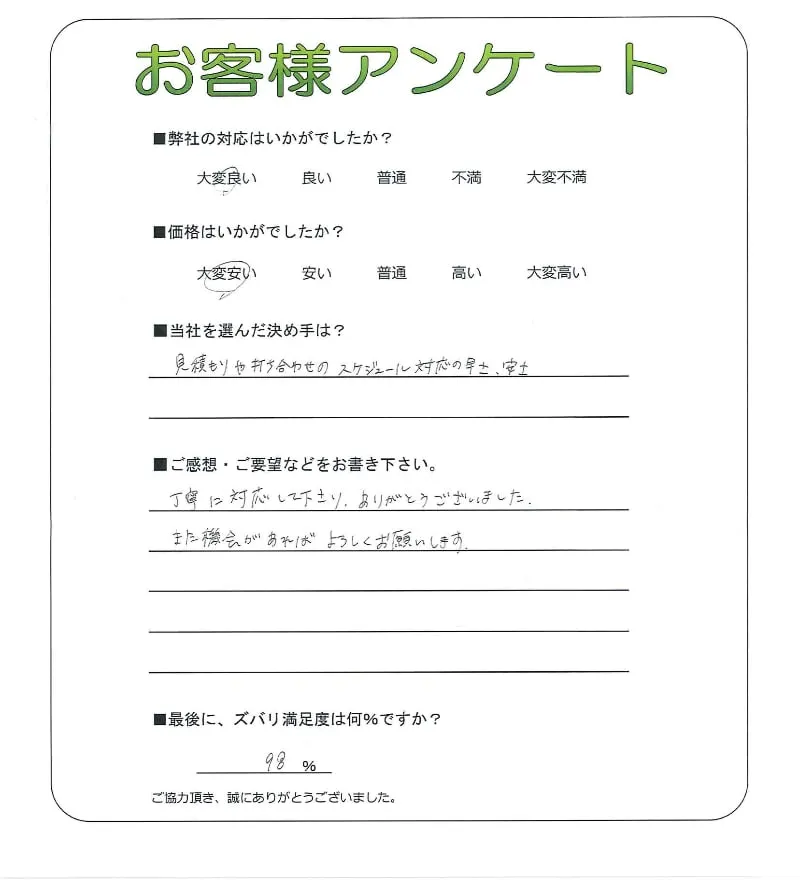 お客様アンケート
■弊社の対応はいかがでしたか？
大変良い 良い 普通 不満 大変不満
■価格はいかがでしたか？
大変安い 安い 普通 高い 大変高い
■当社を選んだ決め手は？
見積もりや打ち合わせのスケジュール対応の早さ、安さ
■ご感想・ご要望などをお書き下さい。
丁寧に対応して下さり、ありがとうございました。
また機会があればよろしくお願いします。
■最後に、ズバリ満足度は何%ですか？
98 %
ご協力頂き、誠にありがとうございました。